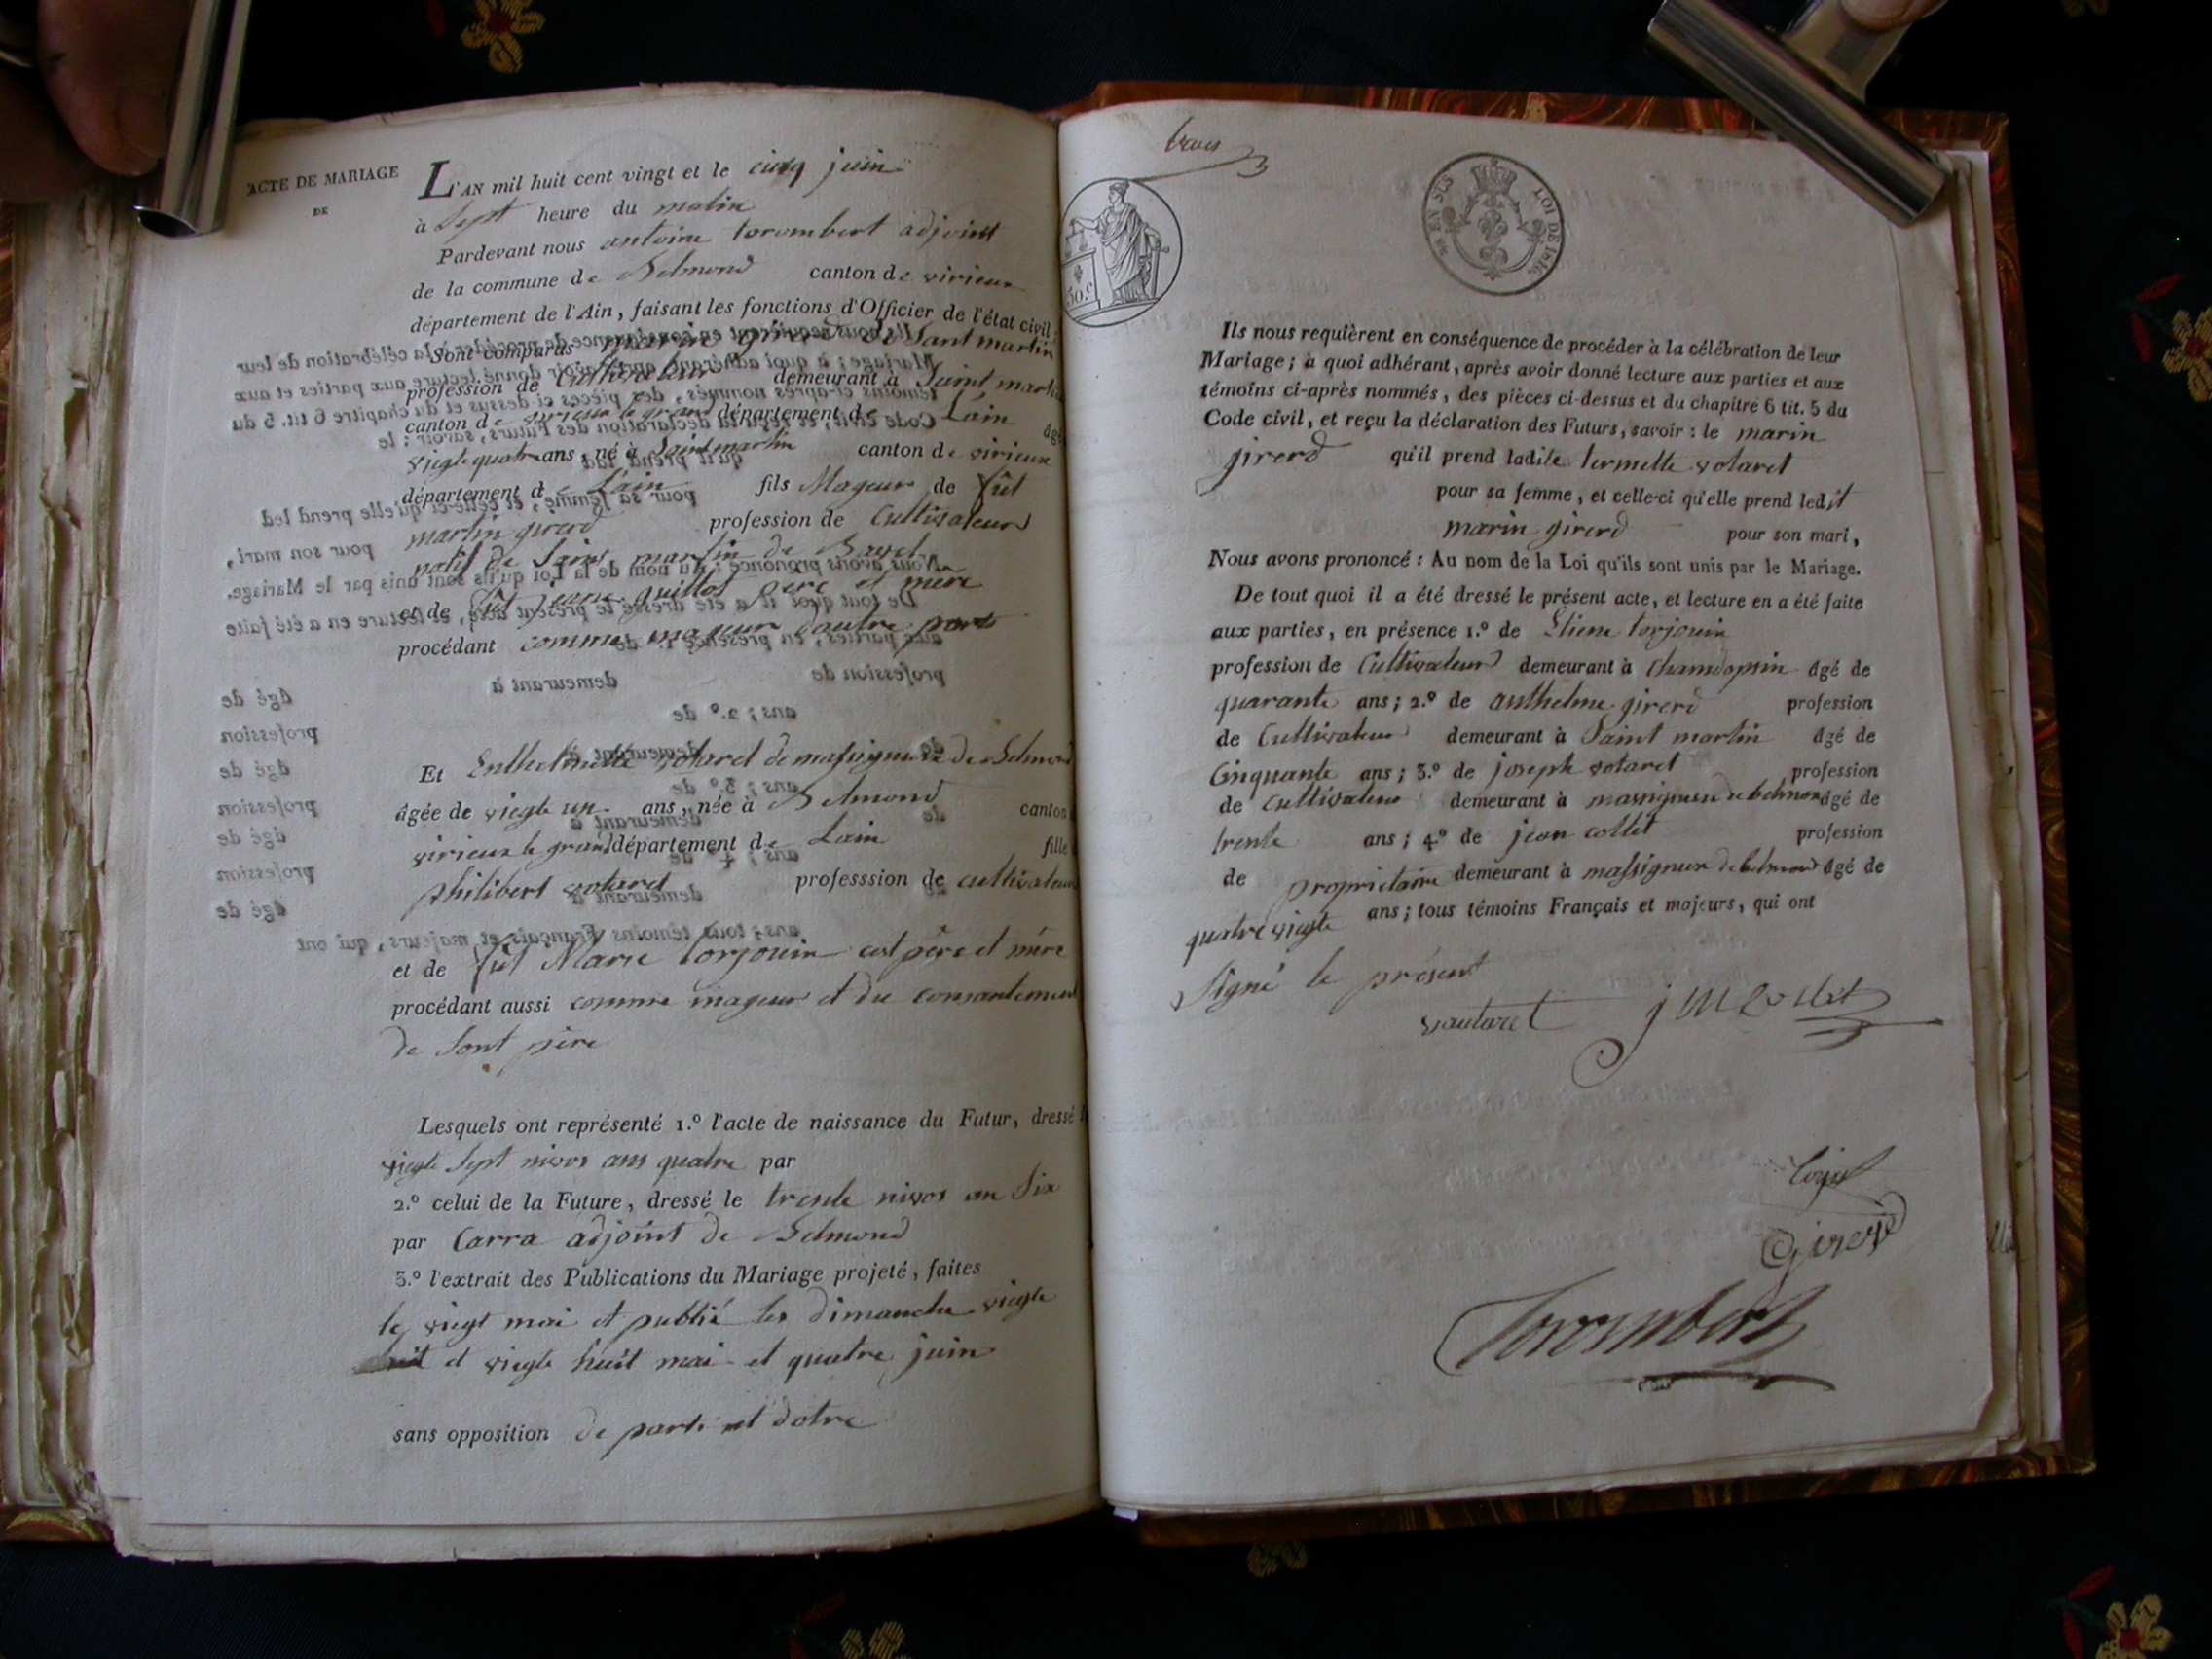 ACTE DE MARIAGE
DE
L'AN mil huit cent vingt et le cinq juin
à Sept heure du matin
Pardevant nous antoine torombert adjoint
de la commune de Belmond canton de virieux
département de l'Ain, faisant les fonctions d'Officier de l'état civil
Sont comparus marin girerd de Saint martin
profession de Cultivateur demeurant à Saint martin
canton de virieux le grand département de Lain âgé
viegte quatre ans, né à Saint martin canton de virieux
département de Lain fils Mageur de fût
martin girerd profession de Cultivateur
natif de Saint martin de Bavel
et de fût jeane guillot père et mère
procédant comme mageur dautre part
Et Enthelmette votaret de massigneux de Belmond
âgée de viegte un ans, née à Belmond canton
virieux le grand département de Lain fille
philibert votaret professsion de cultivateur
et de fût Marie torjouin est père et mère
procédant aussi comme mageur et du consantement
de Sont père
Lesquels ont représenté 1.º l'acte de naissance du Futur, dressé le
viegte Sept nivos ans quatre par
2.º celui de la Future, dressé le trente nivos an Six
par Carra adjoint de Belmond
3.º l'extrait des Publications du Mariage projeté, faites
le viegt mai et publié les dimanche viegte
et viegte huit mai et quatre juin
sans opposition de parti et dotre
LOI DE 1816
50.c
Ils nous requièrent en conséquence de procéder à la célébration de leur
Mariage; à quoi adhérant, après avoir donné lecture aux parties et aux
témoins ci-après nommés, des pièces ci-dessus et du chapitre 6 tit. 5 du
Code civil, et reçu la déclaration des Futurs, savoir : le marin
girerd qu'il prend ladite termette votaret
pour sa femme, et celle-ci qu'elle prend ledit
marin girerd pour son mari,
Nous avons prononcé : Au nom de la Loi qu'ils sont unis par le Mariage.
De tout quoi il a été dressé le présent acte, et lecture en a été faite
aux parties, en présence 1.º de Etiene torjouin
profession de Cultivateur demeurant à Chamdopsin âgé de
quarante ans; 2.º de anthelme girerd profession
de Cultivateur demeurant à Saint martin âgé de
Cinquante ans; 3.º de joseph votaret profession
de Cultivateur demeurant à massigneu de belmond âgé de
trente ans; 4.º de jean collet profession
de propriétaire demeurant à massigneux de belmond âgé de
quatre viegte ans; tous témoins Français et majeurs, qui ont
Signé le présent
vautaret
Girerd
Torombert